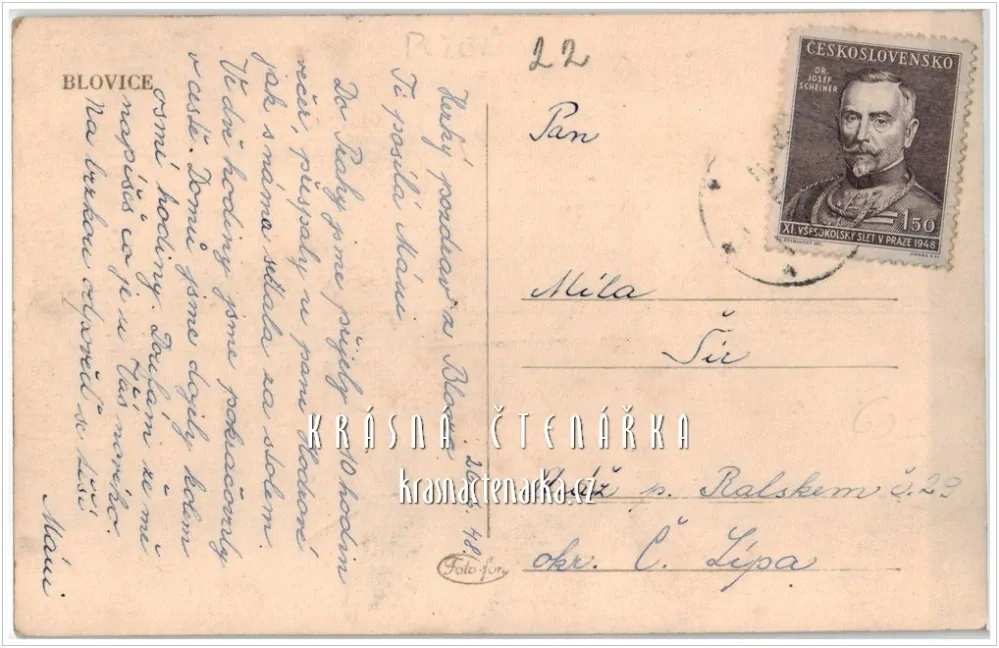 BLOVICE
22
ČESKOSLOVENSKO
DR.
JOSEF
SCHEINER
1·50
XI. VŠESOKOLSKÝ SLET V PRAZE 1948
Pan
Míla
Šír
p. Ralskem č. 29
okr. Č. Lípa
Hezký pozdrav z Blovic
Ti posílá Máni
Do Prahy jsme přijely v 10 hodin
večer, přespaly u paní
jak s náma za stolem.
Ve dvě hodiny jsme pokračovaly
v cestě. Domů jsme dojely kolem
osmí hodiny. Doufám že mě
napíšeš co je u Vás nového.
Na brzkou odpověď se těší
Máni
48.
Foto-fon
KRÁSNÁ ČTENÁŘKA
krasnactenarka.cz